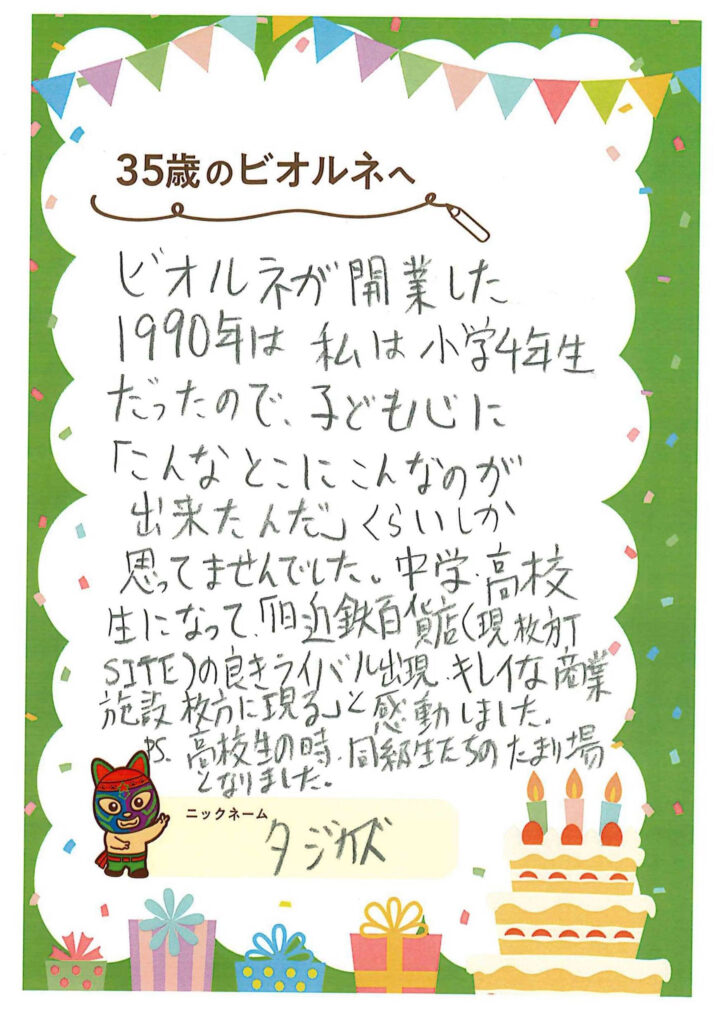 35歳のビオルネへ
ビオルネが開業した
1990年は 私は小学4年生
だったので、子ども心に
「こんなとこにこんなのが
出来たんだ」くらいしか
思ってませんでした。中学・高校
生になって、「旧近鉄百貨店(現枚方T
SITE)の良きライバル出現、キレイな商業
施設枚方に現る」と感動しました。
PS. 高校生の時、同級生たちのたまり場
となりました。
ニックネーム
タジカズ